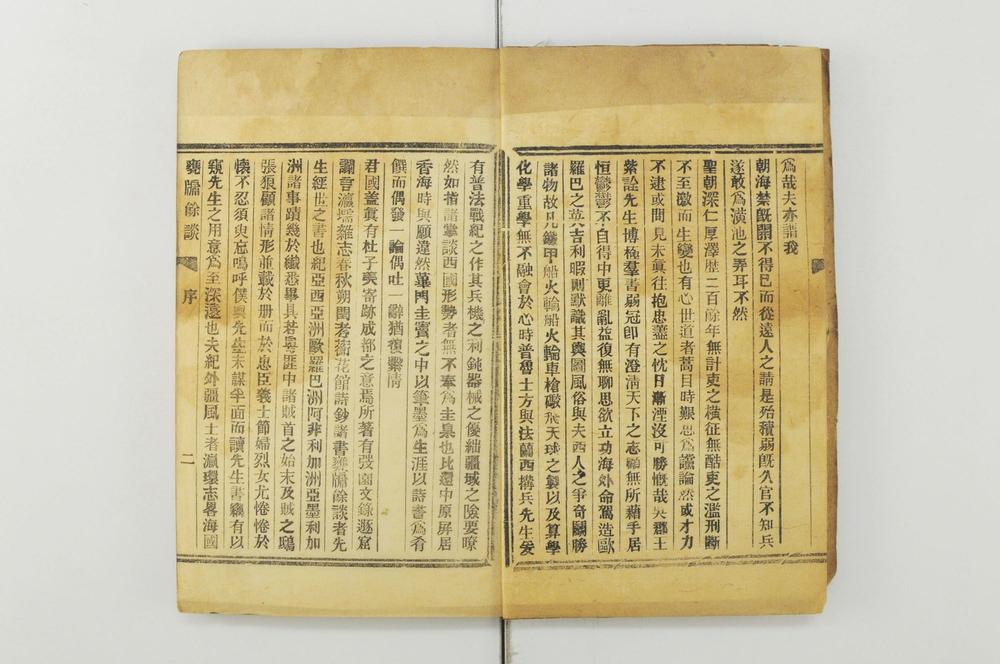 爲哉夫亦謂我
朝海禁旣開不得已而從遠人之請是殆積弱旣久官不知兵
遂敢爲潢池之弄耳不然
聖朝深仁厚澤歷二百餘年無計吏之橫征無酷吏之濫刑斷
不至激而生變也有心世道者蒿目時艱思爲讜論然或才力
不逮或聞見未眞往抱忠藎之忱日漸湮沒可勝慨哉吳郡王
紫詮先生博極羣書弱冠卽有澄淸天下之志顧無所藉手居
恒鬱鬱不自得中更離亂益復無聊思欲立功海外命駕造歐
羅巴之英吉利暇則默識其輿圖風俗與夫西人之爭奇鬭勝
諸物故凡鐵甲船火輪船火輪車槍礮飛天球之製以及算學
化學重學無不融會於心時普魯士方與法蘭西搆兵先生爰
有普法戰紀之作其兵機之利鈍器械之優絀疆域之險要瞭
然如指諸掌談西國形勢者無不奉爲圭臬也比還中原屏居
香海時與願違然蓽門圭竇之中以筆墨爲生涯以詩書爲肴
饌而偶發一論偶吐一辭猶復繫情
君國蓋眞有杜子美寄跡成都之意焉所著有弢園文錄遯窟
讕言瀛壖雜志春秋朔閏考蘅花館詩鈔諸書甕牖餘談者先
生經世之書也紀亞西亞洲歐羅巴洲阿非利加洲亞墨利加
洲諸事蹟幾於纖悉畢具若粵匪中諸賊首之始末及賊之鴟
張狼顧諸情形並載於册而於忠臣義士節婦烈女尤惓惓於
懷不忍須臾忘嗚呼僕與先生未謀半面而讀先生書竊有以
窺先生之用意爲至深遠也夫紀外疆風土者瀛環志畧海國
甕牖餘談
序
二